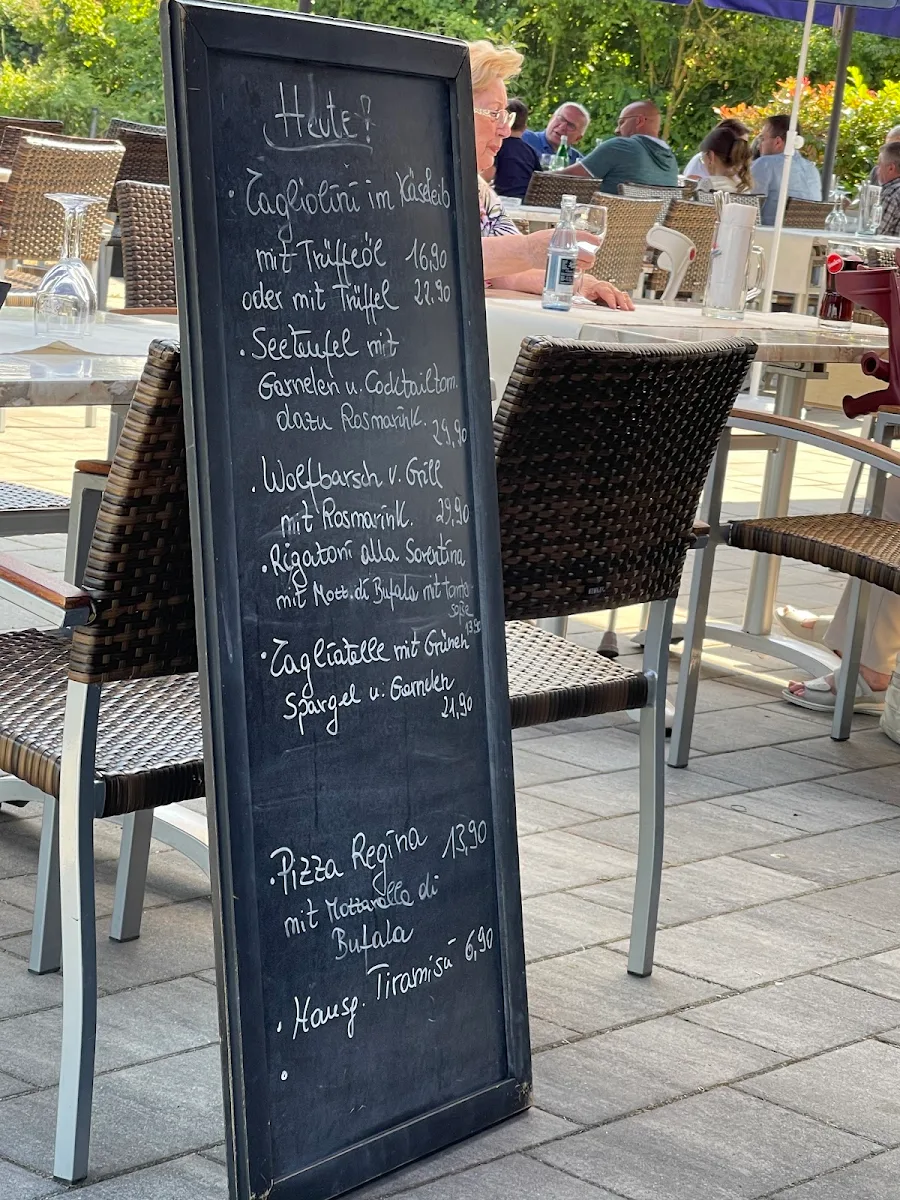 Heute!
· Tagliolini im Käseleib
mit Trüffeöl 16,90
oder mit Trüffel 22.90
· Seeteufel mit
Garnelen u. Cocktailtom.
dazu Rosmarink.
29,90
· Wolfbarsch v. Grill
mit Rosmarink. 29,90
· Rigatoni alla Sorentina
mit Mozz. di Bufala mit Tomto
soße
13,90
· Tagliatelle mit Grünen
Spargel u. Garnelen
21,90
· Pizza Regina 13,90
mit Mozzarella di
Bufala
· Hausg. Tiramisu 6,90